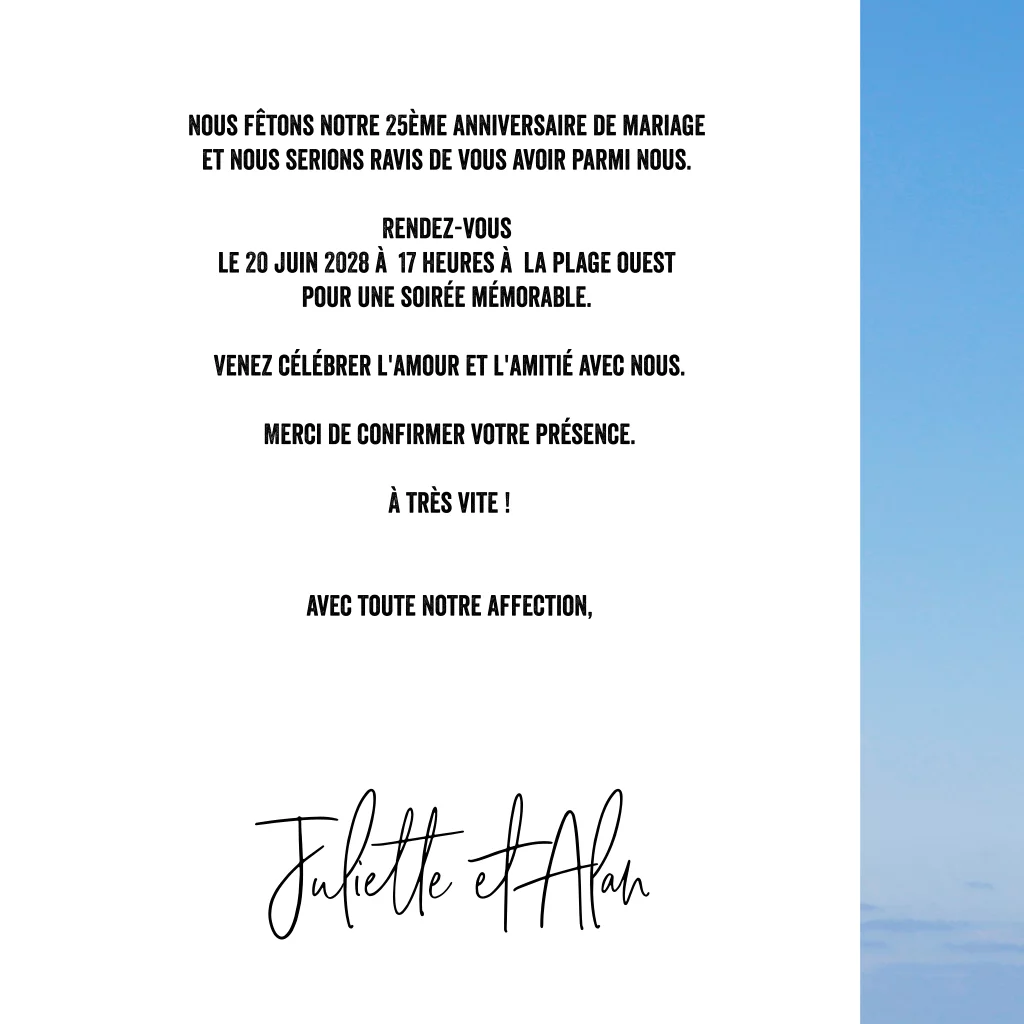 NOUS FÊTONS NOTRE 25ÈME ANNIVERSAIRE DE MARIAGE
ET NOUS SERIONS RAVIS DE VOUS AVOIR PARMI NOUS.
RENDEZ-VOUS
LE 20 JUIN 2028 À  17 HEURES À  LA PLAGE OUEST
POUR UNE SOIRÉE MÉMORABLE.
VENEZ CÉLÉBRER L'AMOUR ET L'AMITIÉ AVEC NOUS.
MERCI DE CONFIRMER VOTRE PRÉSENCE.
À TRÈS VITE !
AVEC TOUTE NOTRE AFFECTION,
Juliette et Alan